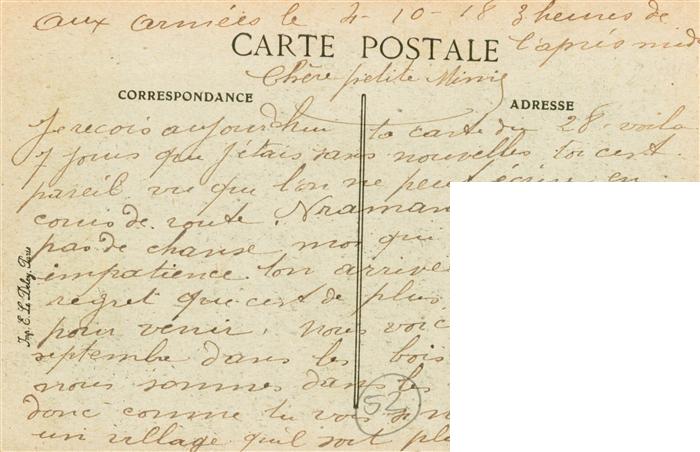 aux armées le 4-10-18 3 heures de
l'après midi
CARTE POSTALE
Chère petite Mimie
CORRESPONDANCE
ADRESSE
Je recois aujourdhui ta carte du 28. voila
7 jours que j'étais sans nouvelles toi cest
pareil vu que l'on ne peut écrire en
cours de route.
pas de chanse moi qui
impatience ton arrive
regret que cest de plus
pour venir. nous voic
septembre dans les bois
nous sommes dans les
donc comme tu vois
un village qu'il soit pl
Imp. E. Le Deley, Paris
52